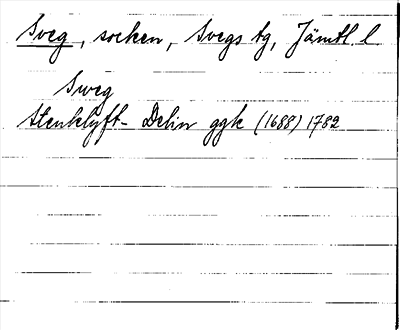 Sveg, socken, Svegs tg, Jämtl. l
Sweg
Stenklyft- Delin ggk (1688) 1782